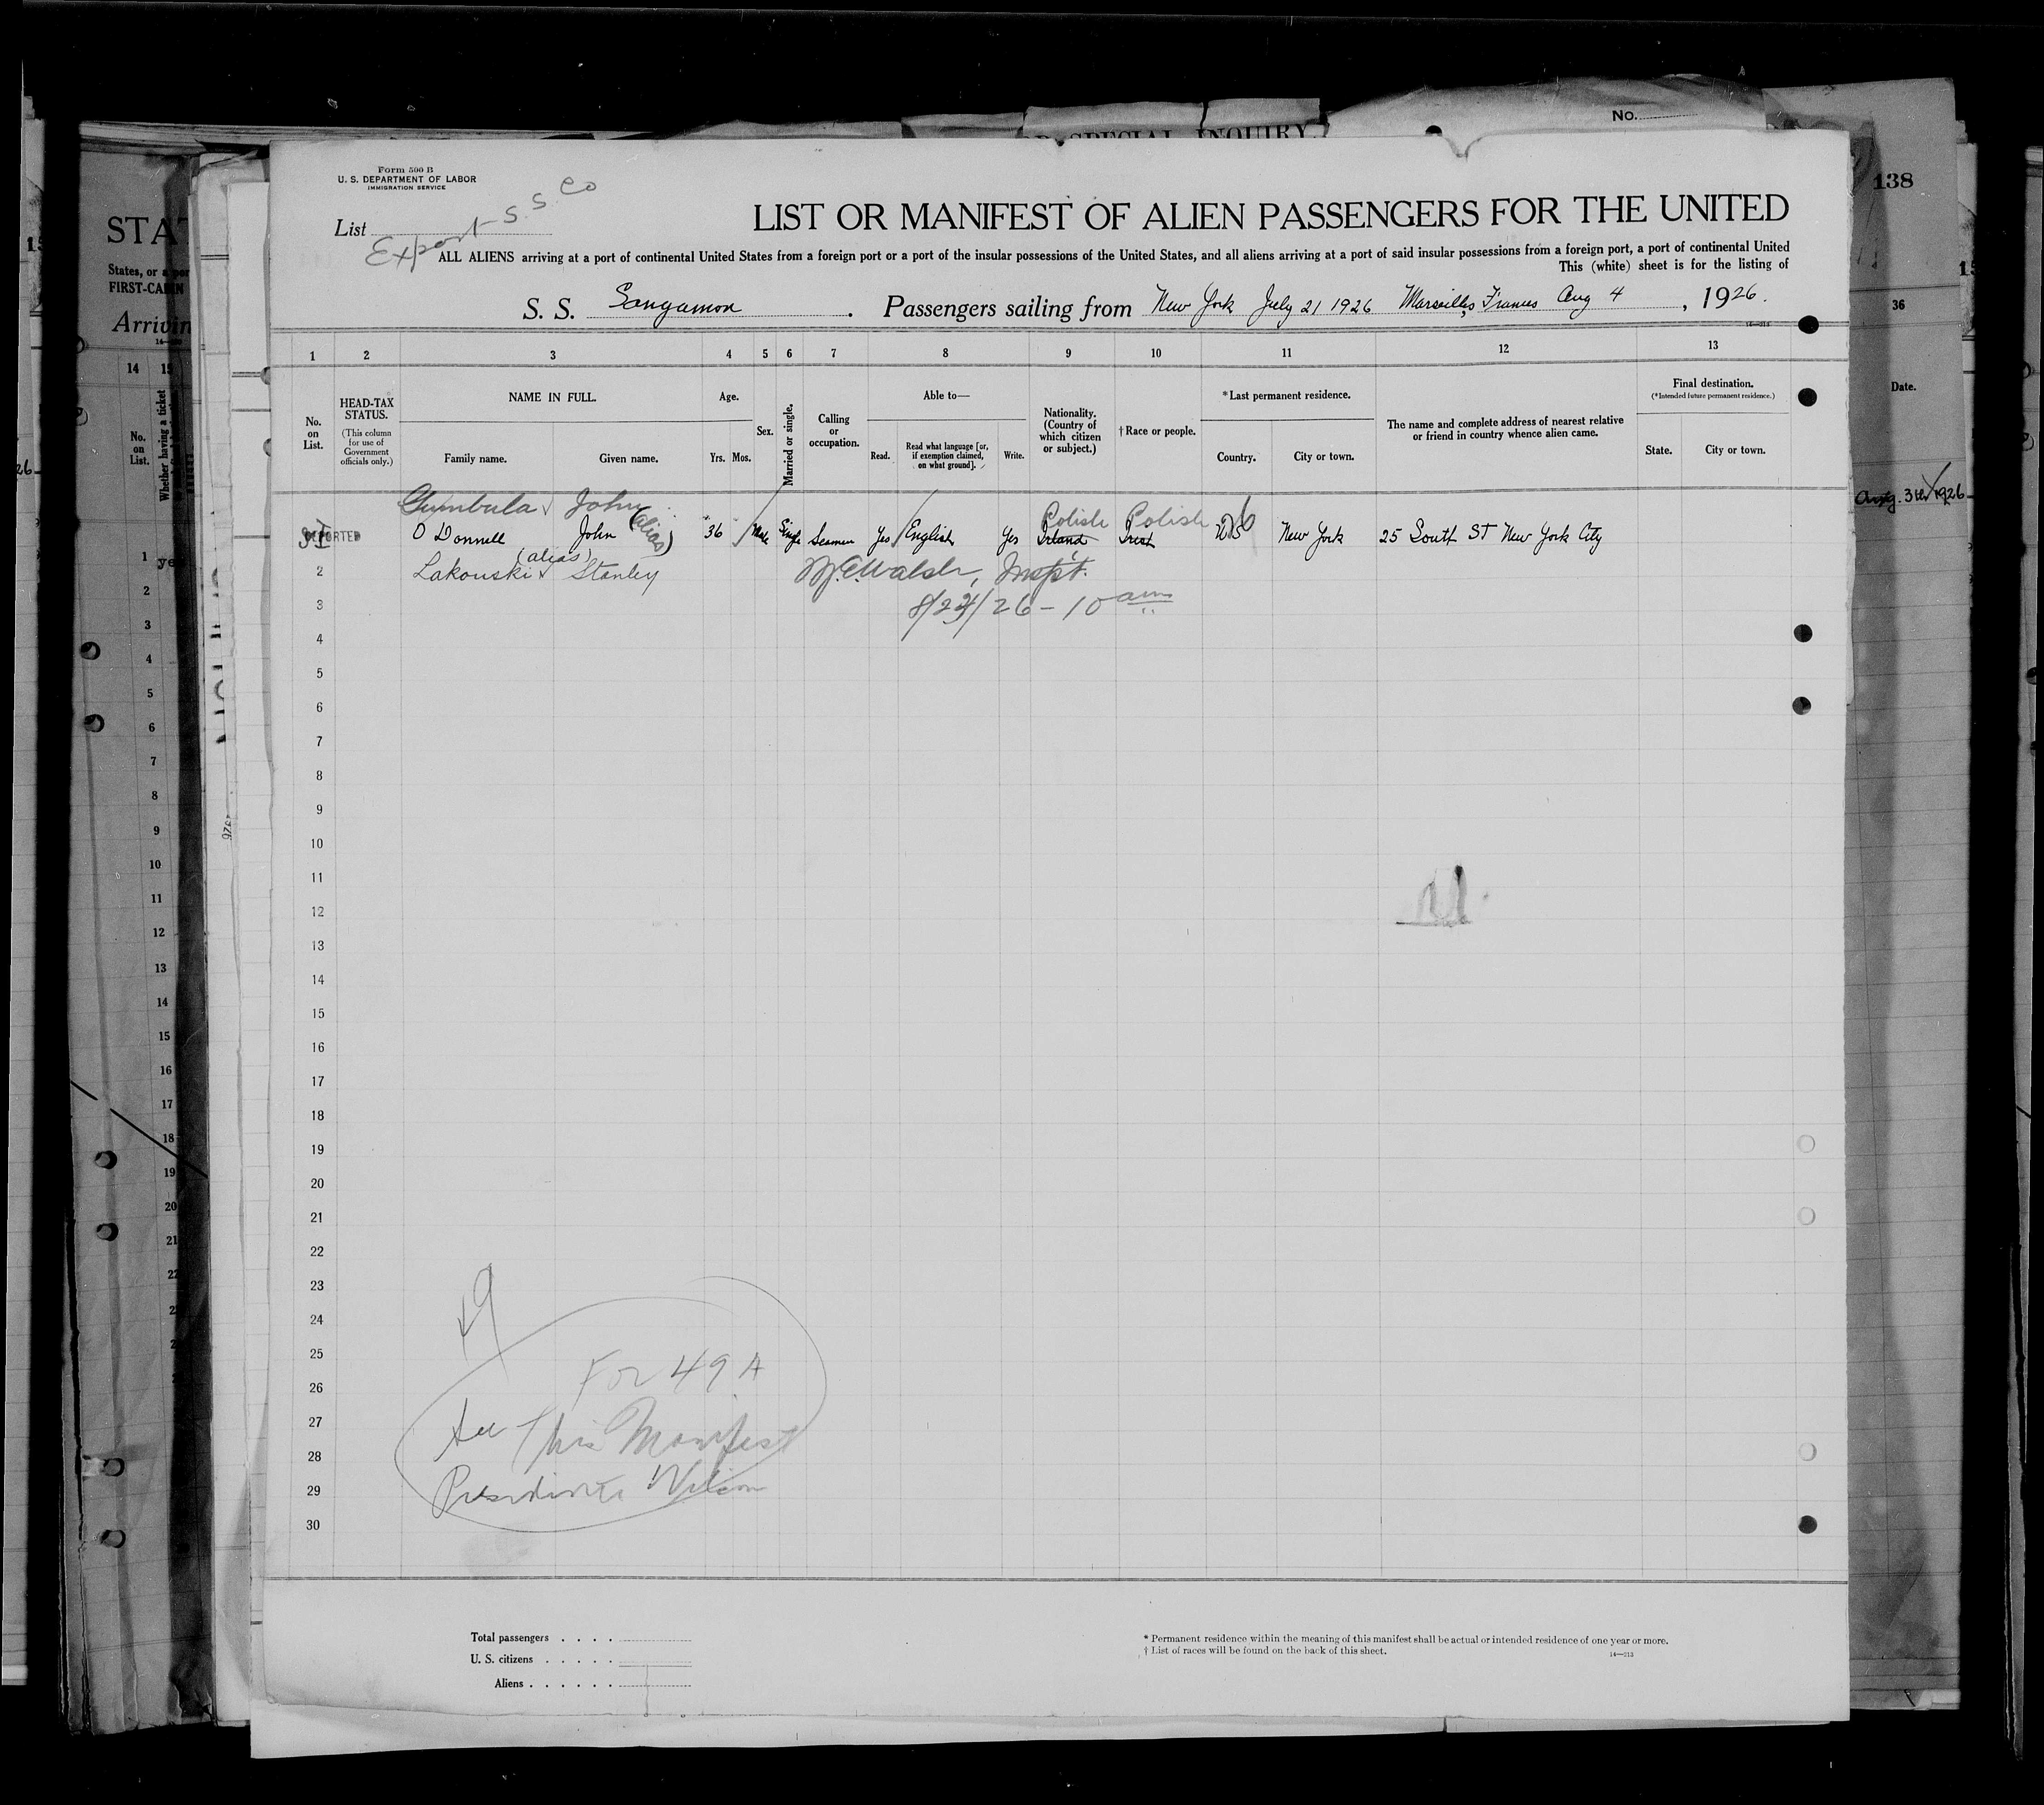 OR SPECIAL INQUIRY.
No.
138
Form 500 B
U. S. DEPARTMENT OF LABOR
IMMIGRATION SERVICE
List
Export S. S. Co
LIST OR MANIFEST OF ALIEN PASSENGERS FOR THE UNITED
ALL ALIENS arriving at a port of continental United States from a foreign port or a port of the insular possessions of the United States, and all aliens arriving at a port of said insular possessions from a foreign port, a port of continental United
This (white) sheet is for the listing of
S. S. Sangamon. Passengers sailing from New York July 21 1926 Marseilles, Frances Aug 4, 1926.
14—213
1 2 3 4 5 6 7 8 9 10 11 12 13
No. on List.
HEAD-TAX STATUS.
(This column for use of Government officials only.)
NAME IN FULL.
Family name. Given name.
Age.
Yrs. Mos.
Sex.
Married or single.
Calling or occupation.
Able to—
Read. Read what language [or, if exemption claimed, on what ground]. Write.
Nationality. (Country of which citizen or subject.)
†Race or people.
*Last permanent residence.
Country. City or town.
The name and complete address of nearest relative or friend in country whence alien came.
Final destination.
(*Intended future permanent residence.)
State. City or town.
Gumbula John Polish Polish
O Donnell John (alias) 36 Male Single Seaman Yes English Yes Irland Irish US New York 25 South ST New York City
(alias)
2 Lakouski Stanley M.E. Walsh, Inspt.
3 8/24/26 - 10 am
4
5
6
7
8
9
10
11
12
13
14
15
16
17
18
19
20
21
22
23
24
25
26
27
28
29
30
49
For 49 A
See This Manifest
Presidente Wilson
Total passengers
U. S. citizens
Aliens
* Permanent residence within the meaning of this manifest shall be actual or intended residence of one year or more.
† List of races will be found on the back of this sheet.
14—213
STAT
States, or a por
FIRST-CABIN
Arrivin
14 15
No. on List.
Whether having a ticket
1 ye
2
3
4
5
6
7
8
9
10
11
12
13
14
15
16
17
18
19
20
21
22
36
Date.
Aug. 3th 1926